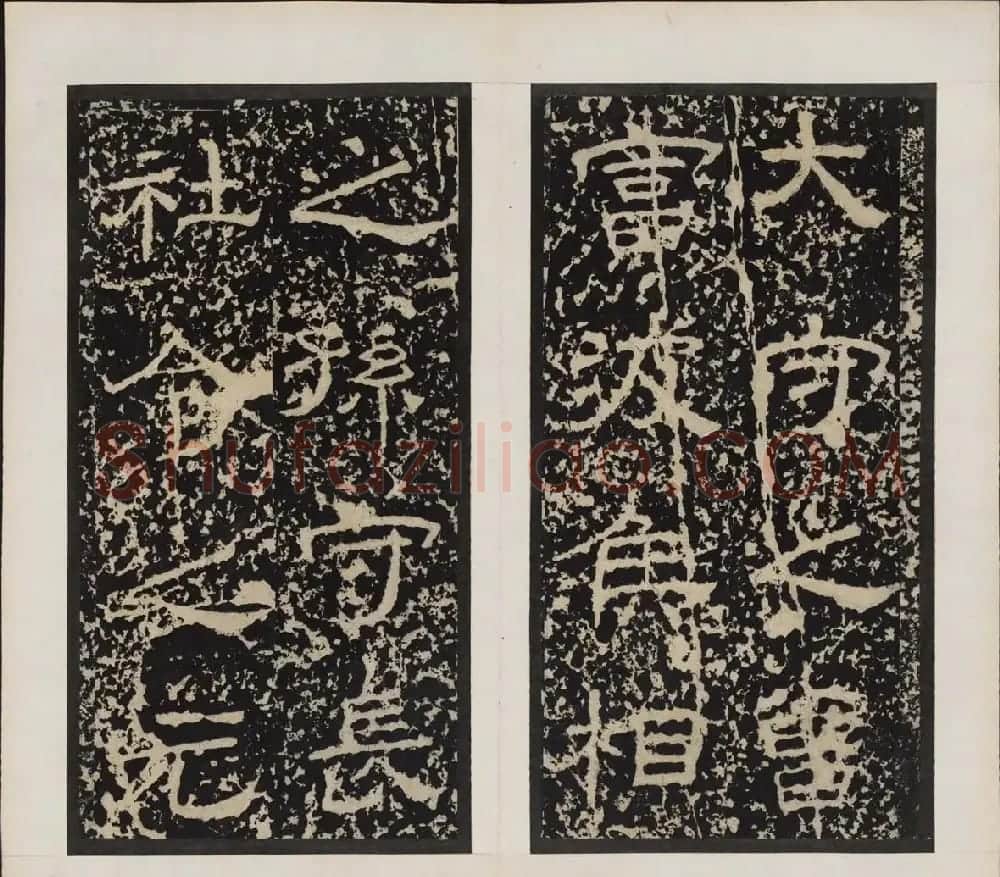 大守之曾
富波侯相
之孫守長
社令之元
Shufaziliao.COM